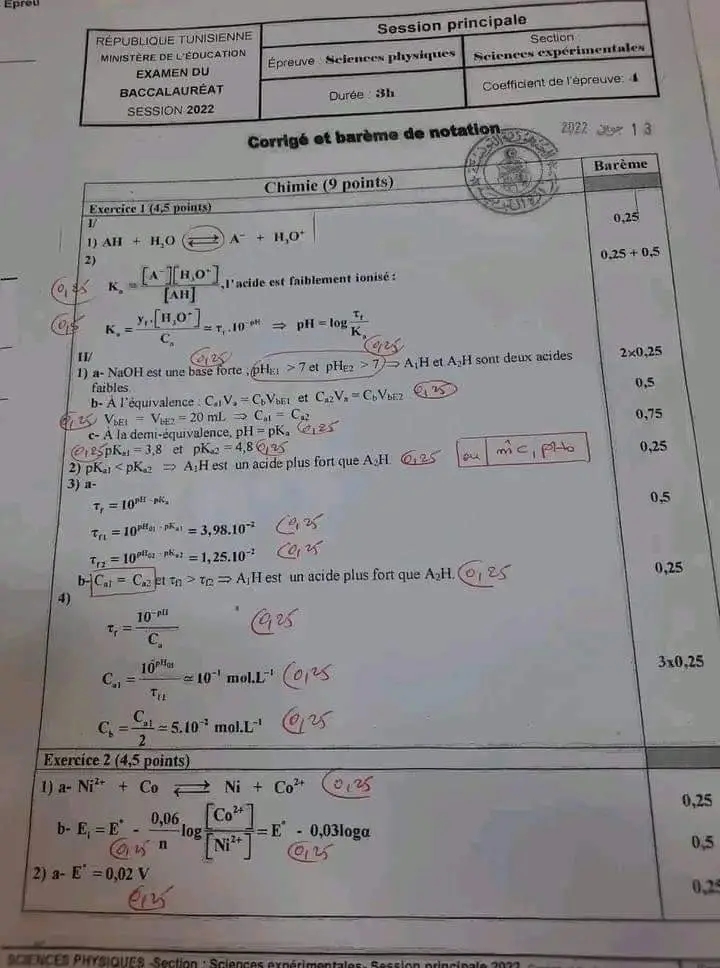 Epreu
RÉPUBLIQUE TUNISIENNE
MINISTÈRE DE L'ÉDUCATION
EXAMEN DU
BACCALAURÉAT
SESSION 2022
Session principale
Épreuve : Sciences physiques
Section
Sciences expérimentales
Durée : 3h
Coefficient de l'épreuve: 4
Corrigé et barème de notation
2022 جوان 13
Chimie (9 points)
Barème
Exercice 1 (4,5 points)
I/
1) AH + H₂O ⇌ A⁻ + H₃O⁺
0,25
2)
0,25 + 0,5
0,25 Kₐ = [A⁻][H₃O⁺] / [AH] , l'acide est faiblement ionisé :
0,5 Kₐ = y_f.[H₃O⁺] / Cₐ ≃ τ_f.10^-pH ⇒ pH = log τ_f / Kₐ
II/
0,25 0,25
1) a- NaOH est une base forte , pH_E1 > 7 et pH_E2 > 7 ⇒ A₁H et A₂H sont deux acides
2x0,25
faibles.
b- À l'équivalence : C_a1V_a = C_bV_bE1 et C_a2V_a = C_bV_bE2 0,25
0,5
0,25 V_bE1 = V_bE2 = 20 mL ⇒ C_a1 = C_a2
c- À la demi-équivalence, pH = pKₐ 0,25
0,75
0,25 pK_a1 = 3,8 et pK_a2 = 4,8 0,25
2) pK_a1 < pK_a2 ⇒ A₁H est un acide plus fort que A₂H. 0,25 ou m̂ C, pH₀
0,25
3) a-
τ_f = 10^(pH - pKₐ)
0,5
τ_f1 = 10^(pH₀₁ - pK_a1) = 3,98.10⁻² 0,25
τ_f2 = 10^(pH₀₂ - pK_a2) = 1,25.10⁻² 0,25
b- C_a1 = C_a2 et τ_f1 > τ_f2 ⇒ A₁H est un acide plus fort que A₂H. 0,25
0,25
4)
τ_f = 10^-pH / Cₐ 0,25
C_a1 = 10^pH₀₁ / τ_f1 ≃ 10⁻¹ mol.L⁻¹ 0,25
3x0,25
C_b = C_a1 / 2 ≃ 5.10⁻² mol.L⁻¹ 0,25
Exercice 2 (4,5 points)
1) a- Ni²⁺ + Co ⇌ Ni + Co²⁺ 0,25
0,25
b- E_i = E° - 0,06 / n log [Co²⁺] / [Ni²⁺] = E° - 0,03logα
0,5
0,25 0,25
2) a- E° = 0,02 V
0,25
0,25
SCIENCES PHYSIQUES -Section : Sciences expérimentales- Session principale 2022